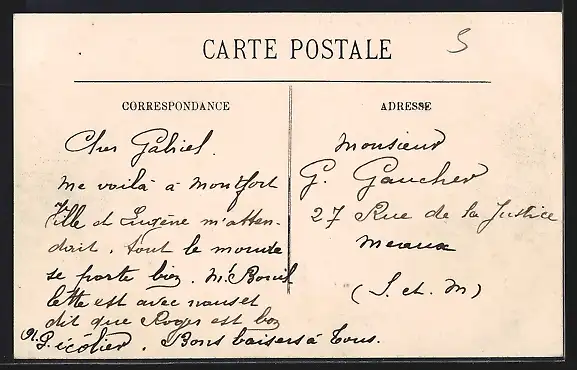 CARTE POSTALE
5
CORRESPONDANCE
Cher Gabriel.
me voilà à Montfort
Ville et Eugène m'atten-
dait. tout le monde
se porte bien. Mr
lette est avec nous et
dit que Roger est bon
écolier. Bons baisers à Tous.
ADRESSE
Monsieur
G. Gaucher
27 Rue de la Justice
Meaux
(S. et. M)